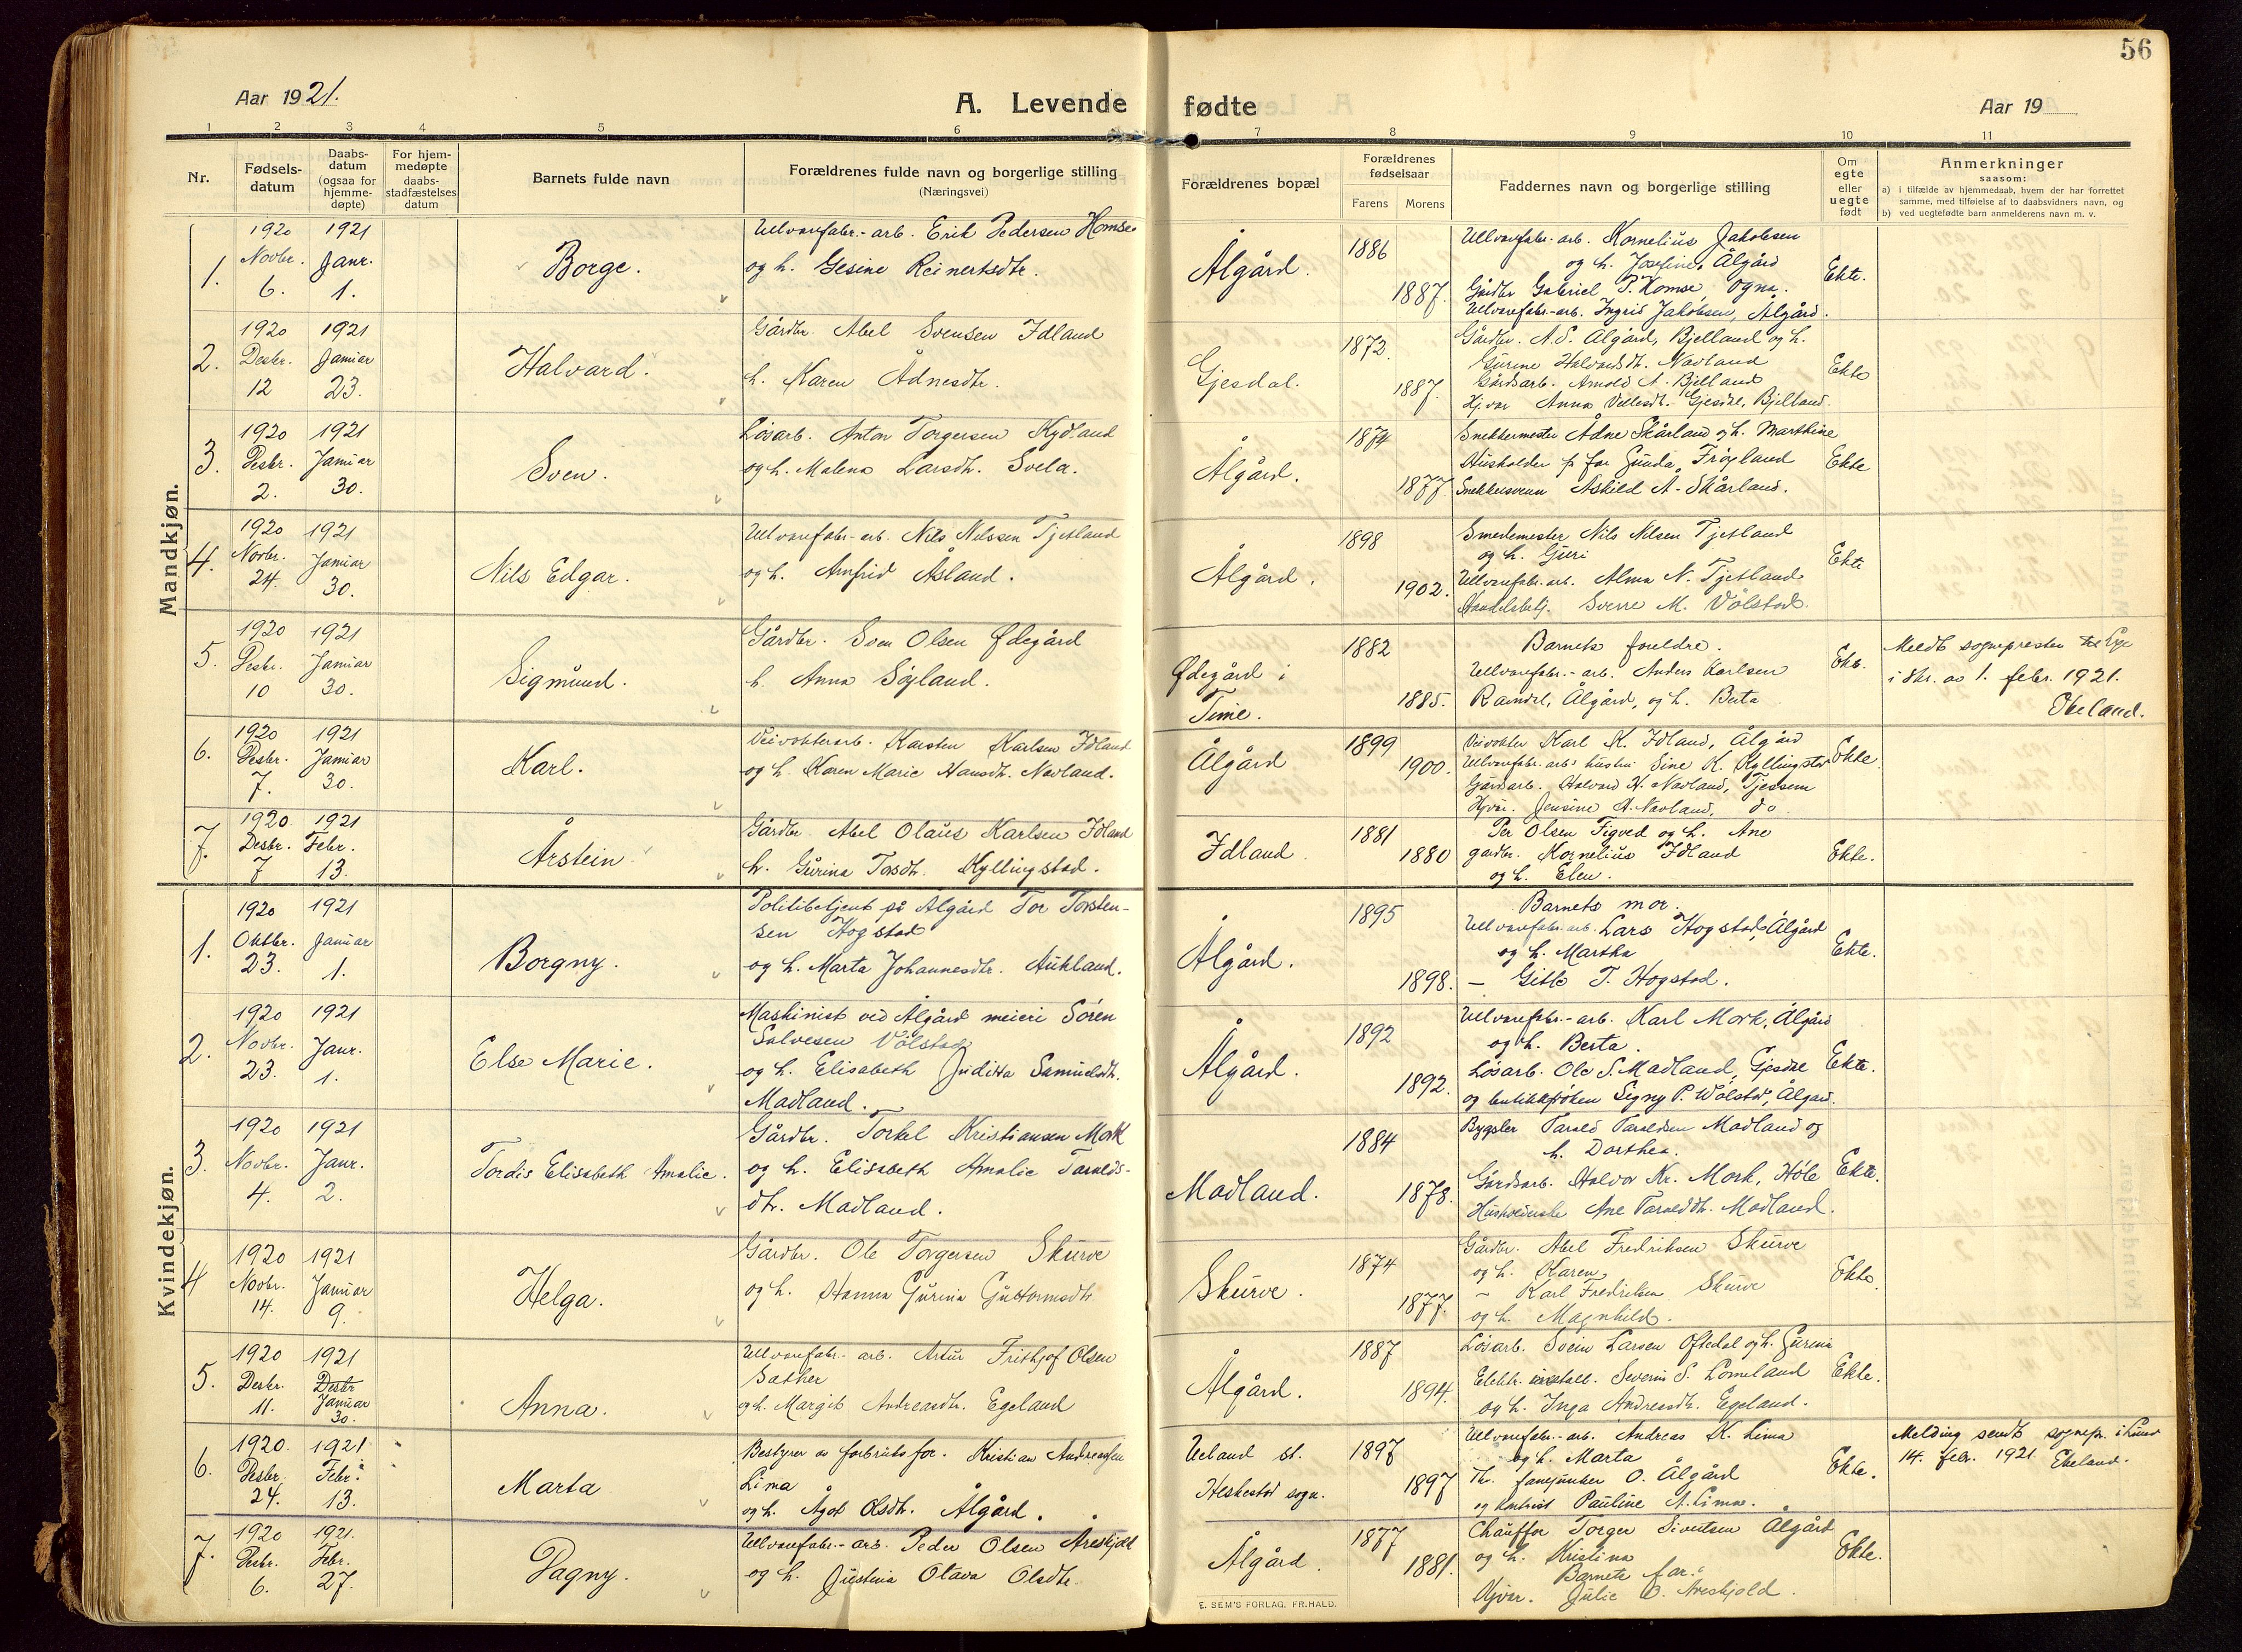 56
Aar 1921.
A. Levende fødte
Aar 19
1 2 3 4 5 6 7 8 9 10 11
Nr.
Fødsels-
datum
Daabs-
datum
(ogsaa for
hjemme-
døpte)
For hjem-
medøpte
daabs-
stadfæstelses
datum
Barnets fulde navn
Forældrenes fulde navn og borgerlige stilling
(Næringsvei)
Forældrenes bopæl
Forældrenes
fødselsaar
Farens Morens
Faddernes navn og borgerlige stilling
Om
egte
eller
uegte
født
Anmerkninger
saasom:
a) i tilfælde av hjemmedaab, hvem der har forrettet
samme, med tilføielse af to daabsvidners navn, og
b) ved uegtefødte barn anmelderens navn m. v.
Mandkjøn.
1.
1920
Novbr.
6.
1921
Janr.
1.
Borge.
Ullvarefabr.-arb. Erik Pedersen Homse
og h. Gesine Reinertsdtr.
Ålgård.
1886
1887.
Ullvarefabr.-arb. Kornelius Jakobsen
og h. Josefine, Ålgård
Gårdbr. Gabriel P. Homse Ogna.
Ullvarefabr.-arb. Ingrid Jakobsen, Ålgård.
Ekte.
2.
1920
Desbr.
12
1921
Januar
23.
Halvard.
Gårdbr. Abel Svensen Idland
h. Karen Ådnesdtr.
Gjesdal.
1872.
1887.
Gårdbr. A. S. Ålgård, Bjelland og h.
Gurine Halvardsdt. Navland
Gårdsarb. Arnold A. Bjelland
Hj.var Anna Gjesdal, Bjelland.
Ekte
3.
1920
Desbr.
2.
1921
Januar
30.
Sven.
Løsarb. Anton Torgersen Kydland
og h. Malena Larsdtr. Svela.
Ålgård.
1874
1877.
Snekkermester Ådne Skårland og h. Marthine
Husholder for Gunda Frøyland
Snekkersvenn Askild A. Skårland.
Ekte
4.
1920
Novbr.
24.
1921
Januar
30.
Nils Edgar.
Ullvarefabr.-arb. Nils Nilssen Tjetland
og h. Arnfrid Åsland.
Ålgård.
1898
1902.
Smedemester Nils Nilsen Tjetland
og h. Guri
Ullvarefabr.arb. Alma N. Tjetland
Handelsbetj. Sverre M. Vølstad.
Ekte
5.
1920
Desbr.
10
1921
Januar
30.
Sigmund.
Gårdbr. Sven Olsen Ødegård
h. Anna Søyland.
Ødegård i
Time.
1882
1885.
Barnets foreldre.
Ullvarefabr.-arb. Anders Karlsen
Ravndal, Ålgård, og h. Berta
Ekte.
Meldt sognepresten
i skr. av 1. febr. 1921.
Ekeland.
6.
1920
Desbr.
7.
1921
Januar
30.
Karl.
Veivokterarb. Karsten Karlsen Idland
og h. Karen Marie Hansdtr. Navland.
Ålgård
1899
1900.
Veivokter Karl K. Idland, Ålgård
Ullvarefabr.-arb's hustru Sine K. Kyllingstad
Gårdsarb. Halvard H. Navland, Tjessem
Hjvar. Jensine H. Navland, do
Ekte.
7.
1920
Desbr.
7
1921
Febr.
13.
Årstein
Gårdbr. Abel Olaus Karlsen Idland
h. Gurina Torsdtr. Kyllingstad.
Idland
1881
1880
Per Olsen Tigved og h. Ane
gardbr. Kornelius Idland
og h. Elen.
Ekte.
Kvindekjøn.
1.
1920
Oktbr.
23.
1921
Januar
1.
Borgny.
Politibetjent på Ålgård Tor Torsten-
sen Hogstad
og h. Marta Johannesdtr. Aukland.
Ålgård.
1895
1898.
Barnets mor.
Ullvarefabr.arb. Lars Hogstad, Ålgård
og h. Martha
— Gitle T. Hogstad.
Ekte.
2.
1920
Novbr.
23.
1921
Janr.
1.
Else Marie.
Maskinist ved Ålgård meieri Sören
Salvesen Vølstad
og h. Elisabeth Juditta Samuelsdtr.
Madland.
Ålgård.
1892
1892.
Ullvarefabr.-arb. Karl Mork, Ålgård
og h. Berta.
Løsarb. Ole S. Madland, Gjesdal
og butikkfrøken Signy P. Wølstad, Ålgård.
Ekte.
3.
1920
Novbr.
4.
1921
Janr.
2.
Tordis Elisabeth Amalie.
Gårdbr. Torkel Kristiansen Mork
og h. Elisabeth Amalie Taralds-
dtr. Madland.
Madland.
1884
1878.
Bygsler Tarald Taraldsen Madland og
h. Dorthea.
Gårdsarb. Halvor Kr. Mork, Høle
Husholderske Ane Taralddtr. Madland.
Ekte.
4
1920
Novbr.
14.
1921
Januar
9.
Helga.
Gårdbr. Ole Torgersen Skurve
og h. Hanna Gurina Guttormsdtr.
Skurve.
1874
1877.
Gårdbr. Abel Fredriksen Skurve
og h. Karen
— Karl Fredriksen Skurve
og h. Magnhild.
Ekte.
5.
1920
Desbr.
11.
1921
Desbr
Januar
30.
Anna.
Ullvarefabr.-arb. Artur Frithjof Olsen
Sæther
og h. Margit Andreasdtr. Egeland
Ålgård.
1887
1894.
Løsarb. Svein Larsen Oftedal og h. Gurina
Elektr. install. Severin S. Lomeland
og h. Inga Andreasdtr. Egeland.
Ekte.
6.
1920.
Desbr.
24.
1921
Febr.
13.
Marta
Bestyrer av forbruksfor. Kristian Andreassen
Lima
og h. Ågot Olsdtr. Ålgård.
Ueland st.
Heskestad sogn.
1897
1897
Ullvarefabr.-arb. Andreas K. Lima
og h. Marta
Th. fanejunker O. Ålgård
og Pauline A. Lima.
Ekte.
Melding sendt sognepr. i Lund
14. febr. 1921. Ekeland.
7.
1920
Desbr.
6.
1921.
Febr.
27.
Dagny.
Ullvarefabr.-arb. Peder Olsen Åreskjold
og h. Justina Olava Olsdtr.
Ålgård.
1877
1881.
Chauffør Torger Sivertsen Ålgård
og h. Kristina
Barnets far.
Hjvar. Julie O. Areskjold.
Ekte.
E. SEM'S FORLAG, FR.HALD.